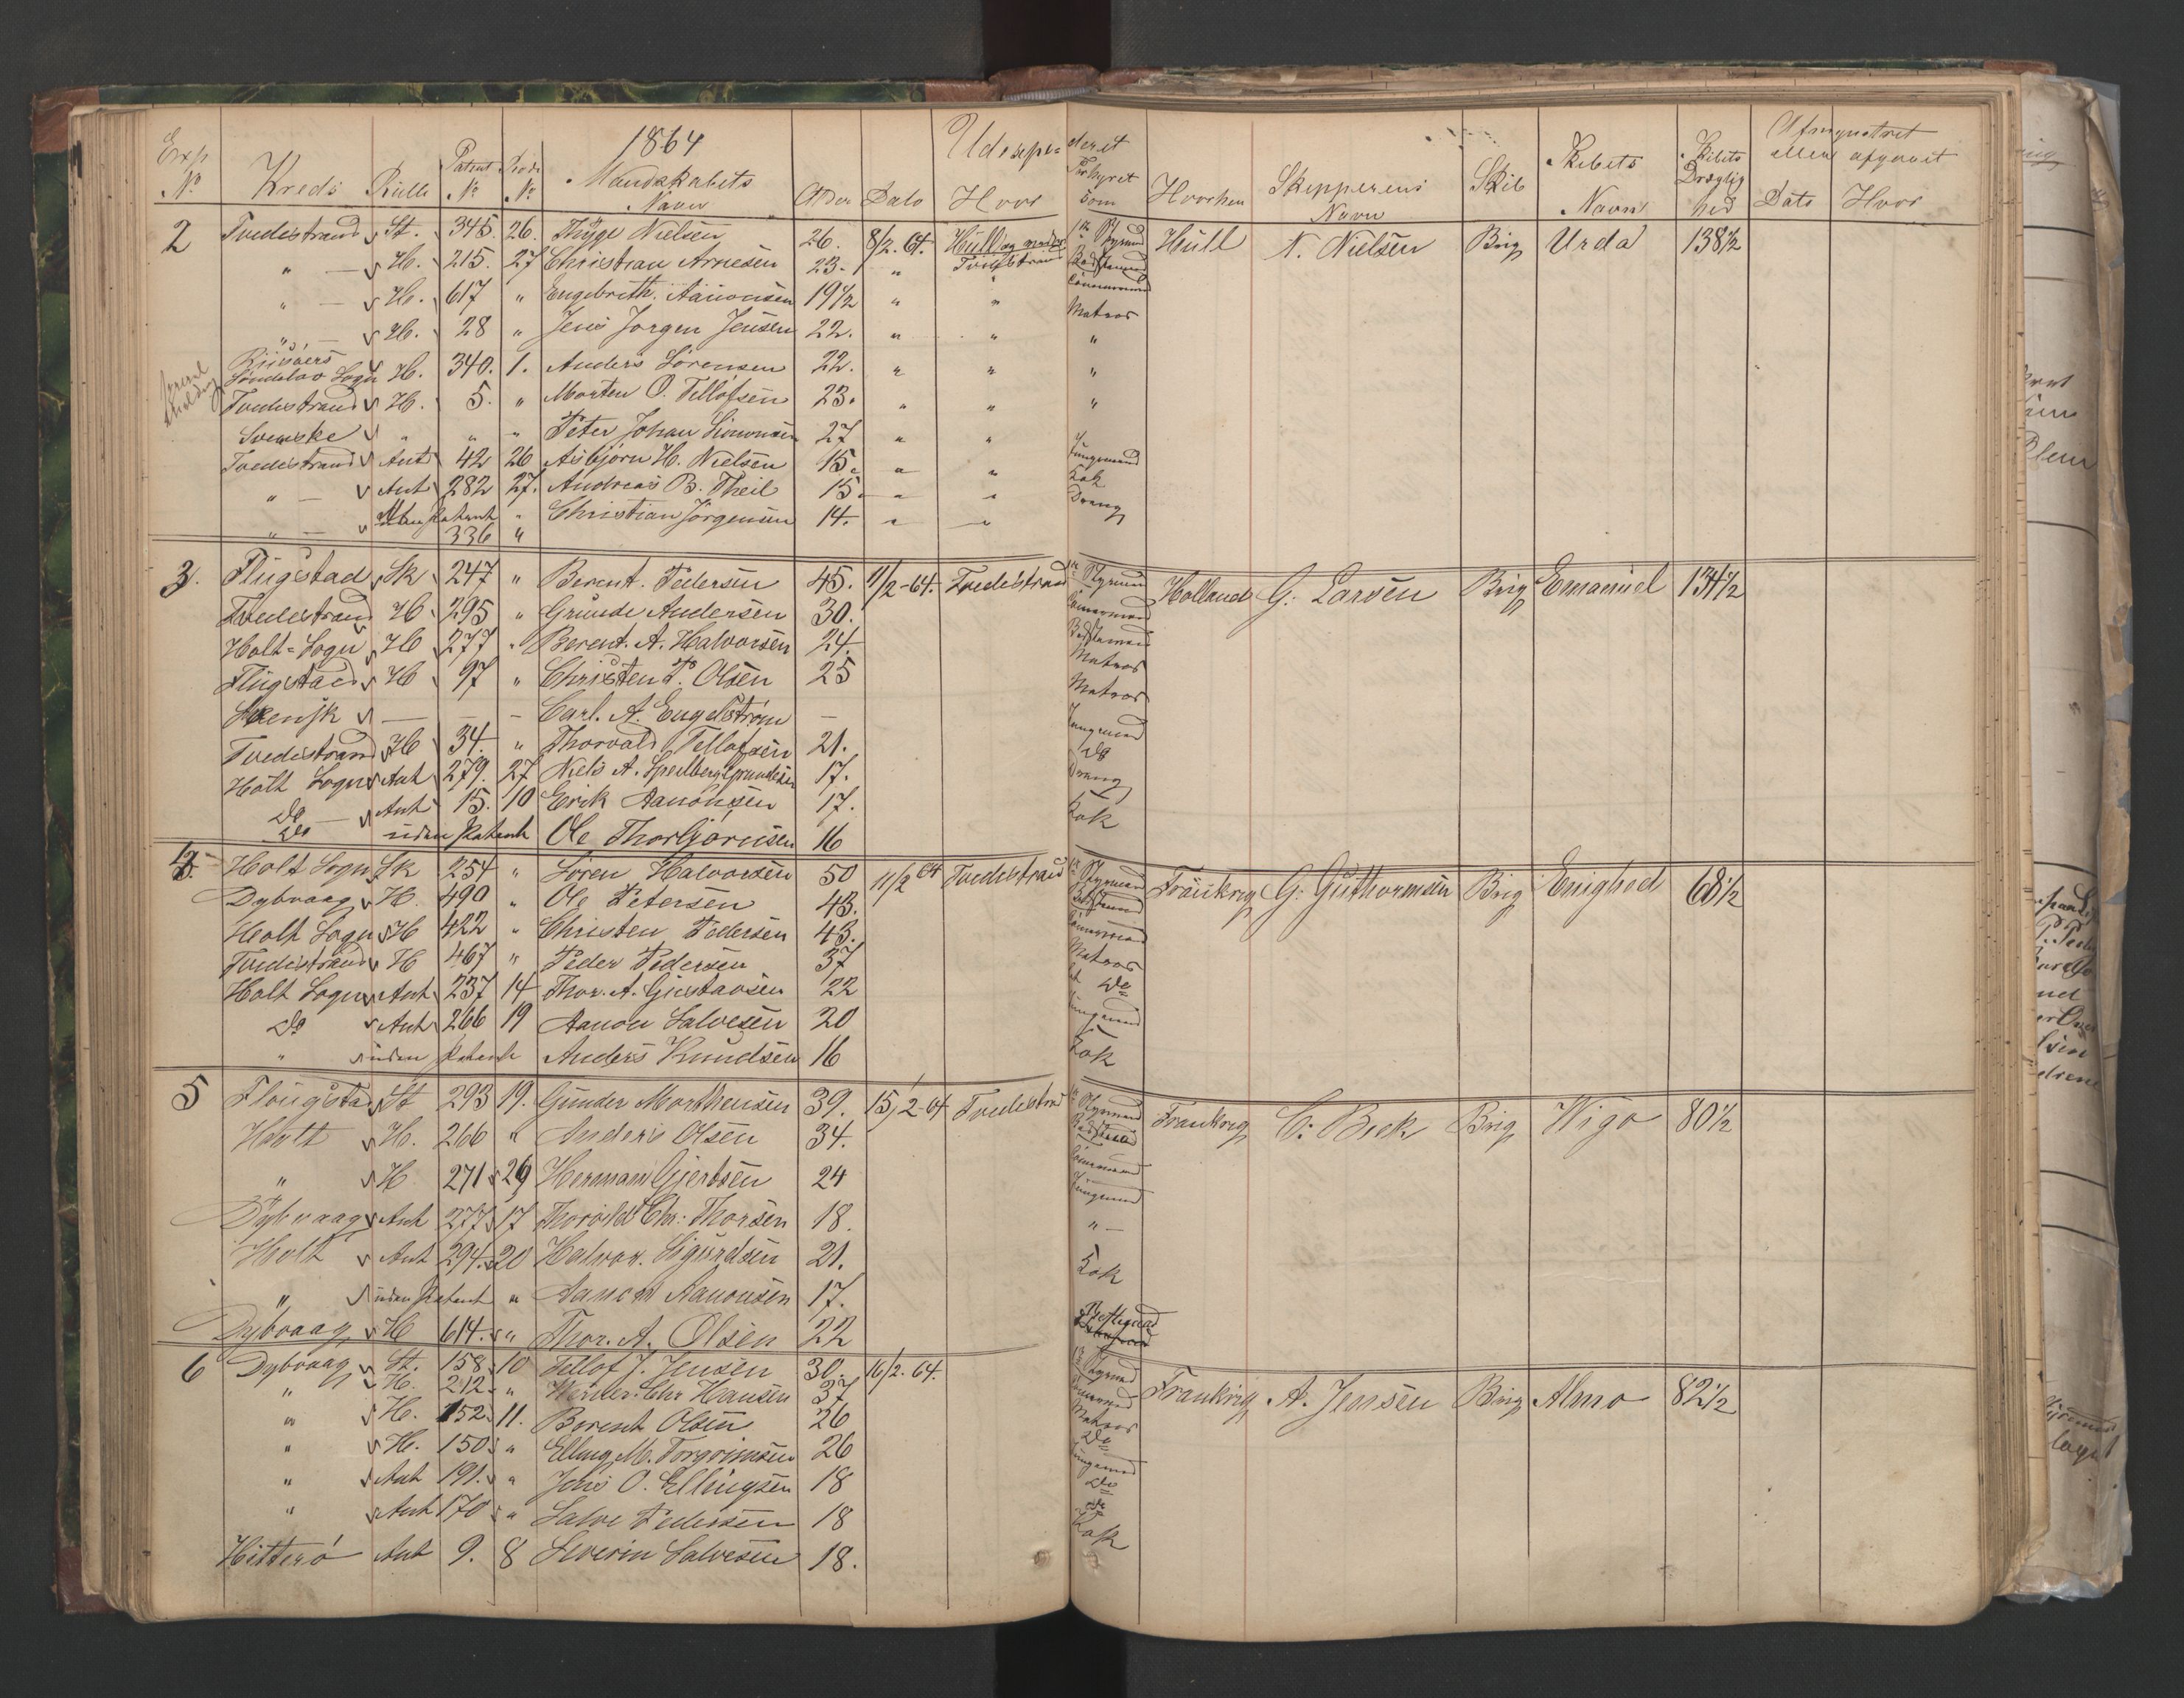 1864
Exp Nº Kreds Rulle Patent Nº Rode Nº Mandskabets Navn Alder Dato Udexpe= Hvor
deret Forhyret som Hvorhen Skipperens Navn Skib Skibets Navn Skibets Drægtighed Afmynstret eller afgaaet Dato Hvor
2 Tvedestrand St. 345. 26. Thyge Nielsen 26. 8/2. 64. Hull og Tvedestrand 1ste Styrmand Hull N. Nielsen Brig Urda 138½
" — H. 215. 27 Christian Arnesen 23. " " Baadsmand
" — H. 617 " Engebreth. Aanonsen 19½ " " Tømmermand
" — H. 28 " Jens Jørgen Jensen 22. " " Matros
Riisøers Søndeløv Sogn H. 340. 1. Anders Sørensen 22. " " "
Tvedestrand H. 5. " Morten O. Tellofsen 23. " " "
Svenske " " " Peter Johan Simonsen 27 " " "
Tvedestrand Ant 42 26 Asbjørn H. Nielsen 15. " " Jungmand
" — Ant 282 27. Andreas B. Theil 15. " " Kok
" — uden Patent 336 " Christian Jørgensen 14. " " Dreng
3. Flugstad Sk 247 " Berent. Pedersen 45. 11/2-64. Tvedestrand 1ste Styrmand Holland G. Larsen Brig Emanuel 131½
Tvedestrand H 295 " Grunde Andersen 30. Tømmermand
Holt=Sogn H 277 " Berent. A. Halvorsen 24. Baadsmand
Flugstad H 97 " Christen P. Olsen 25 Matros
Svensk — — — Carl. A. Engelstrøm — Matros
Tvedestrand H 34. " Thorvald Tellofsen 21. Jungmand
Holt Sogn Ant 279. 27 Niels A. Speilberg Grundesen 17. Do
Do — Ant 15. 10 Erik Aanonsen 17. Dreng
Do uden Patent Ole Thorbjørnsen 16 Kok
4. Holt Sogn Sk 254 " Søren Halvorsen 50 11/2 64 Tvedestrand 1ste Styrmand Frankrig G. Guthormsen Brig Enighed 68½
Dybvaag H. 490 " Ole Petersen 43. Baadsmand
Holt Sogn H 422 " Christen Pedersen 43. Tømmermand
Tvedestrand H 467 " Peder Pedersen 37 Matros
Holt Sogn Ant 237 14 Thor. A. Gustavsen 22 Do
Do Ant 266 19 Aanon Salvesen 20 Jungmand
" uden Patent Anders Knudsen 16 Kok
5 Flougstad St 293 19. Gunder Morthensen 39. 15/2-64 Tvedestrand 1ste Styrmand Frankrig C: Beck Brig Wigo 80½
Holt H. 266 " Anders Olsen 34. Baadsmand
" H 271 29 Herman Gjertsen 24 Tømmermand
Dybvaag Ant 277 17 Thorvald Chr: Thorsen 18. Jungmand
Holt Ant 294. 20 Halvor. Sigurdsen 21. " —
" uden Patent " Aanon Aanonsen 17. Kok
Dybvaag H 614. " Thor. A. Olsen 22
6 Dybvaag St. 158 10 Tellef J. Jensen 30. 16/2. 64. 1ste Styrmand Frankrig A. Jensen Brig Alma 82½
" H. 212 " Chr Hansen 37 Tømmermand
" H. 152 11. Berent Olsen 26 Matros
" H. 150 " Elling M. Torgrimsen 26 Do
" Ant 191. " Jens O. Ellingsen 18 Jungmand
" Ant 170 " Salve Pedersen 18 Do
Hitterö Ant 9. 8 Severin Salvesen 18. Kok